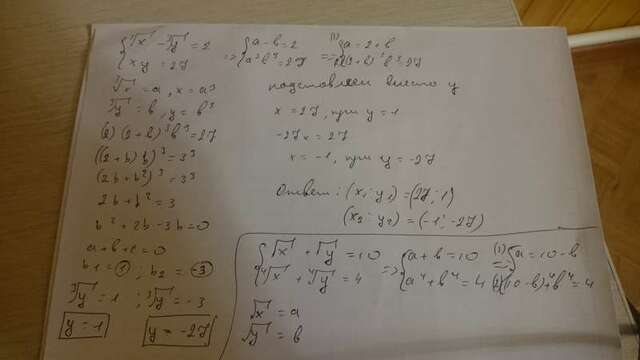 {∛x - ∛y = 2
{x y = 27
=> {a - b = 2
{a³b³ = 27
(1) => {a = 2 + b
{(2+b)³b³ = 27
∛x = a, x = a³
∛y = b, y = b³
(2) (2+b)³b³ = 27
((2+b)b)³ = 3³
(2b+b²)³ = 3³
2b+b² = 3
b² + 2b - 3b = 0
a+b+c = 0
b1 = 1; b2 = -3
∛y = 1; ∛y = -3
y = 1
y = -27
подставляем вместо y
x = 27, при y = 1
-27x = 27
x = -1, при y = -27
Ответ: (x₁; y₁) = (27; 1)
(x₂; y₂) = (-1; -27)
{√x + √y = 10
{∜x + ∜y = 4
=> {a + b = 10
{a⁴ + b⁴ = 4
(1) => {a = 10 - b
(2) {(10-b)⁴ + b⁴ = 4
√x = a
√y = b